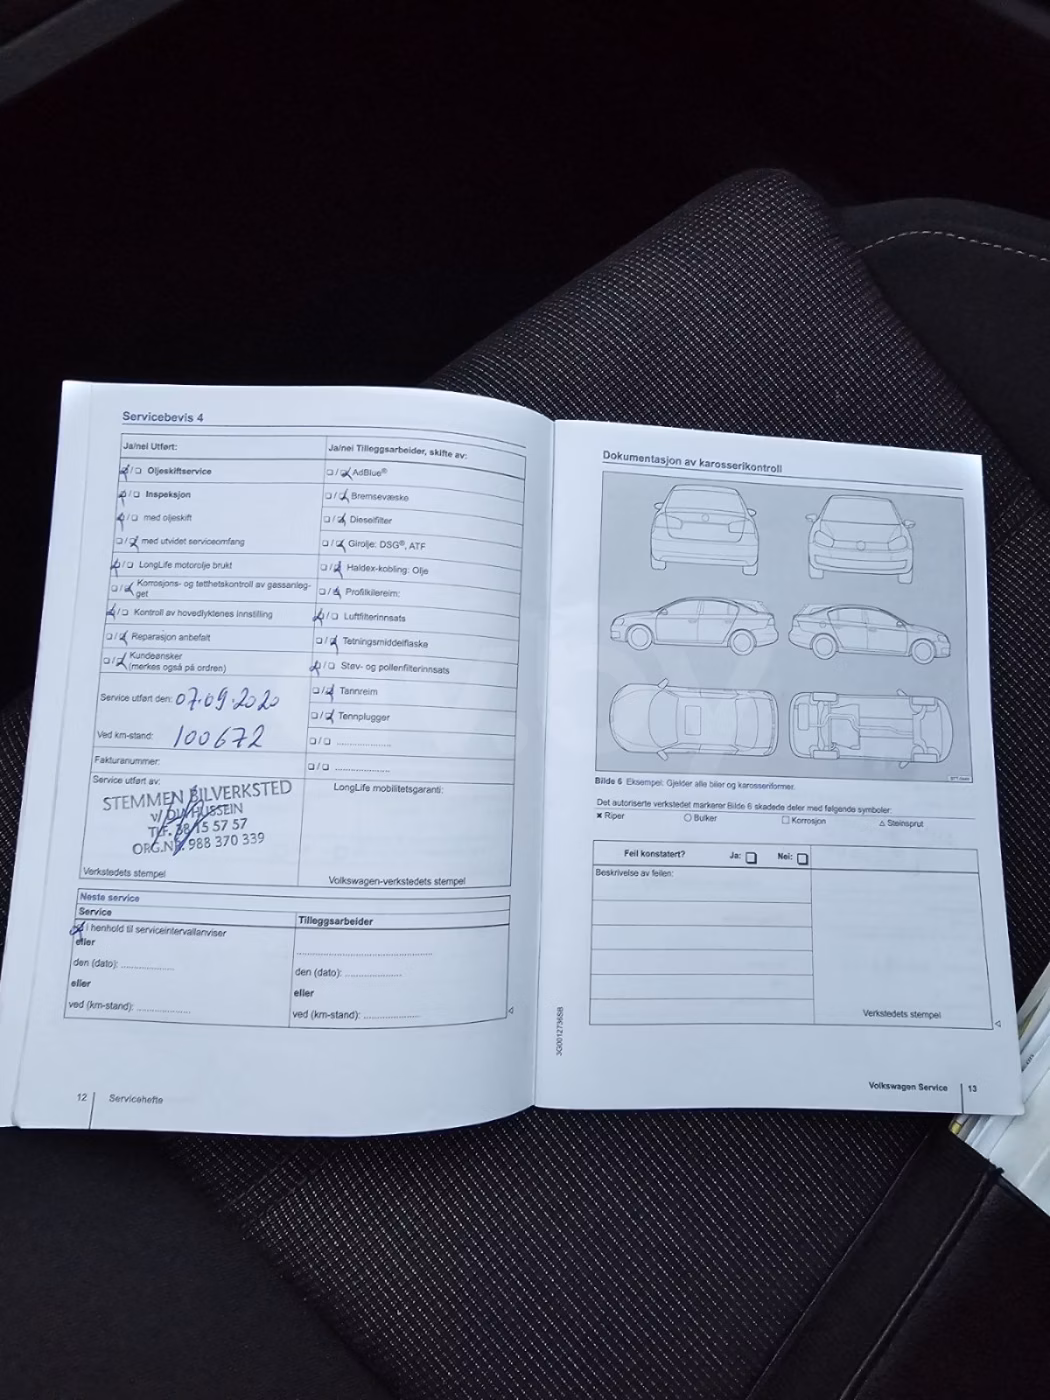 Servicebevis 4
Ja/nei Utført:
Ja/nei Tilleggsarbeider, skifte av:
Oljeskiftservice
AdBlue®
Inspeksjon
Bremsevæske
med oljeskift
Dieselfilter
med utvidet serviceomfang
Girolje: DSG®, ATF
LongLife motorolje brukt
Haldex-kobling: Olje
Korrosjons- og tetthetskontroll av gassanleg-
get
Profilkilereim:
Kontroll av hovedlyktenes innstilling
Luftfilterinnsats
Reparasjon anbefalt
Tetningsmiddelflaske
Kundeønsker
(merkes også på ordren)
Støv- og pollenfilterinnsats
Tannreim
Tennplugger
Service utført den: 07.09.2020
Ved km-stand: 100672
Fakturanummer:
Service utført av:
STEMMEN BILVERKSTED
HUSSEIN
15 57 57
988 370 339
Verkstedets stempel
LongLife mobilitetsgaranti:
Volkswagen-verkstedets stempel
Neste service
Service
Tilleggsarbeider
i henhold til serviceintervallanviser
eller
den (dato): ....................
den (dato): ....................
eller
eller
ved (km-stand): ....................
ved (km-stand): ....................
12 Servicehefte
Dokumentasjon av karosserikontroll
Bilde 6 Eksempel: Gjelder alle biler og karosseriformer.
Det autoriserte verkstedet markerer Bilde 6 skadede deler med følgende symboler:
Riper
Bulker
Korrosjon
Steinsprut
Feil konstatert? Ja: Nei:
Beskrivelse av feilen:
Verkstedets stempel
Volkswagen Service 13